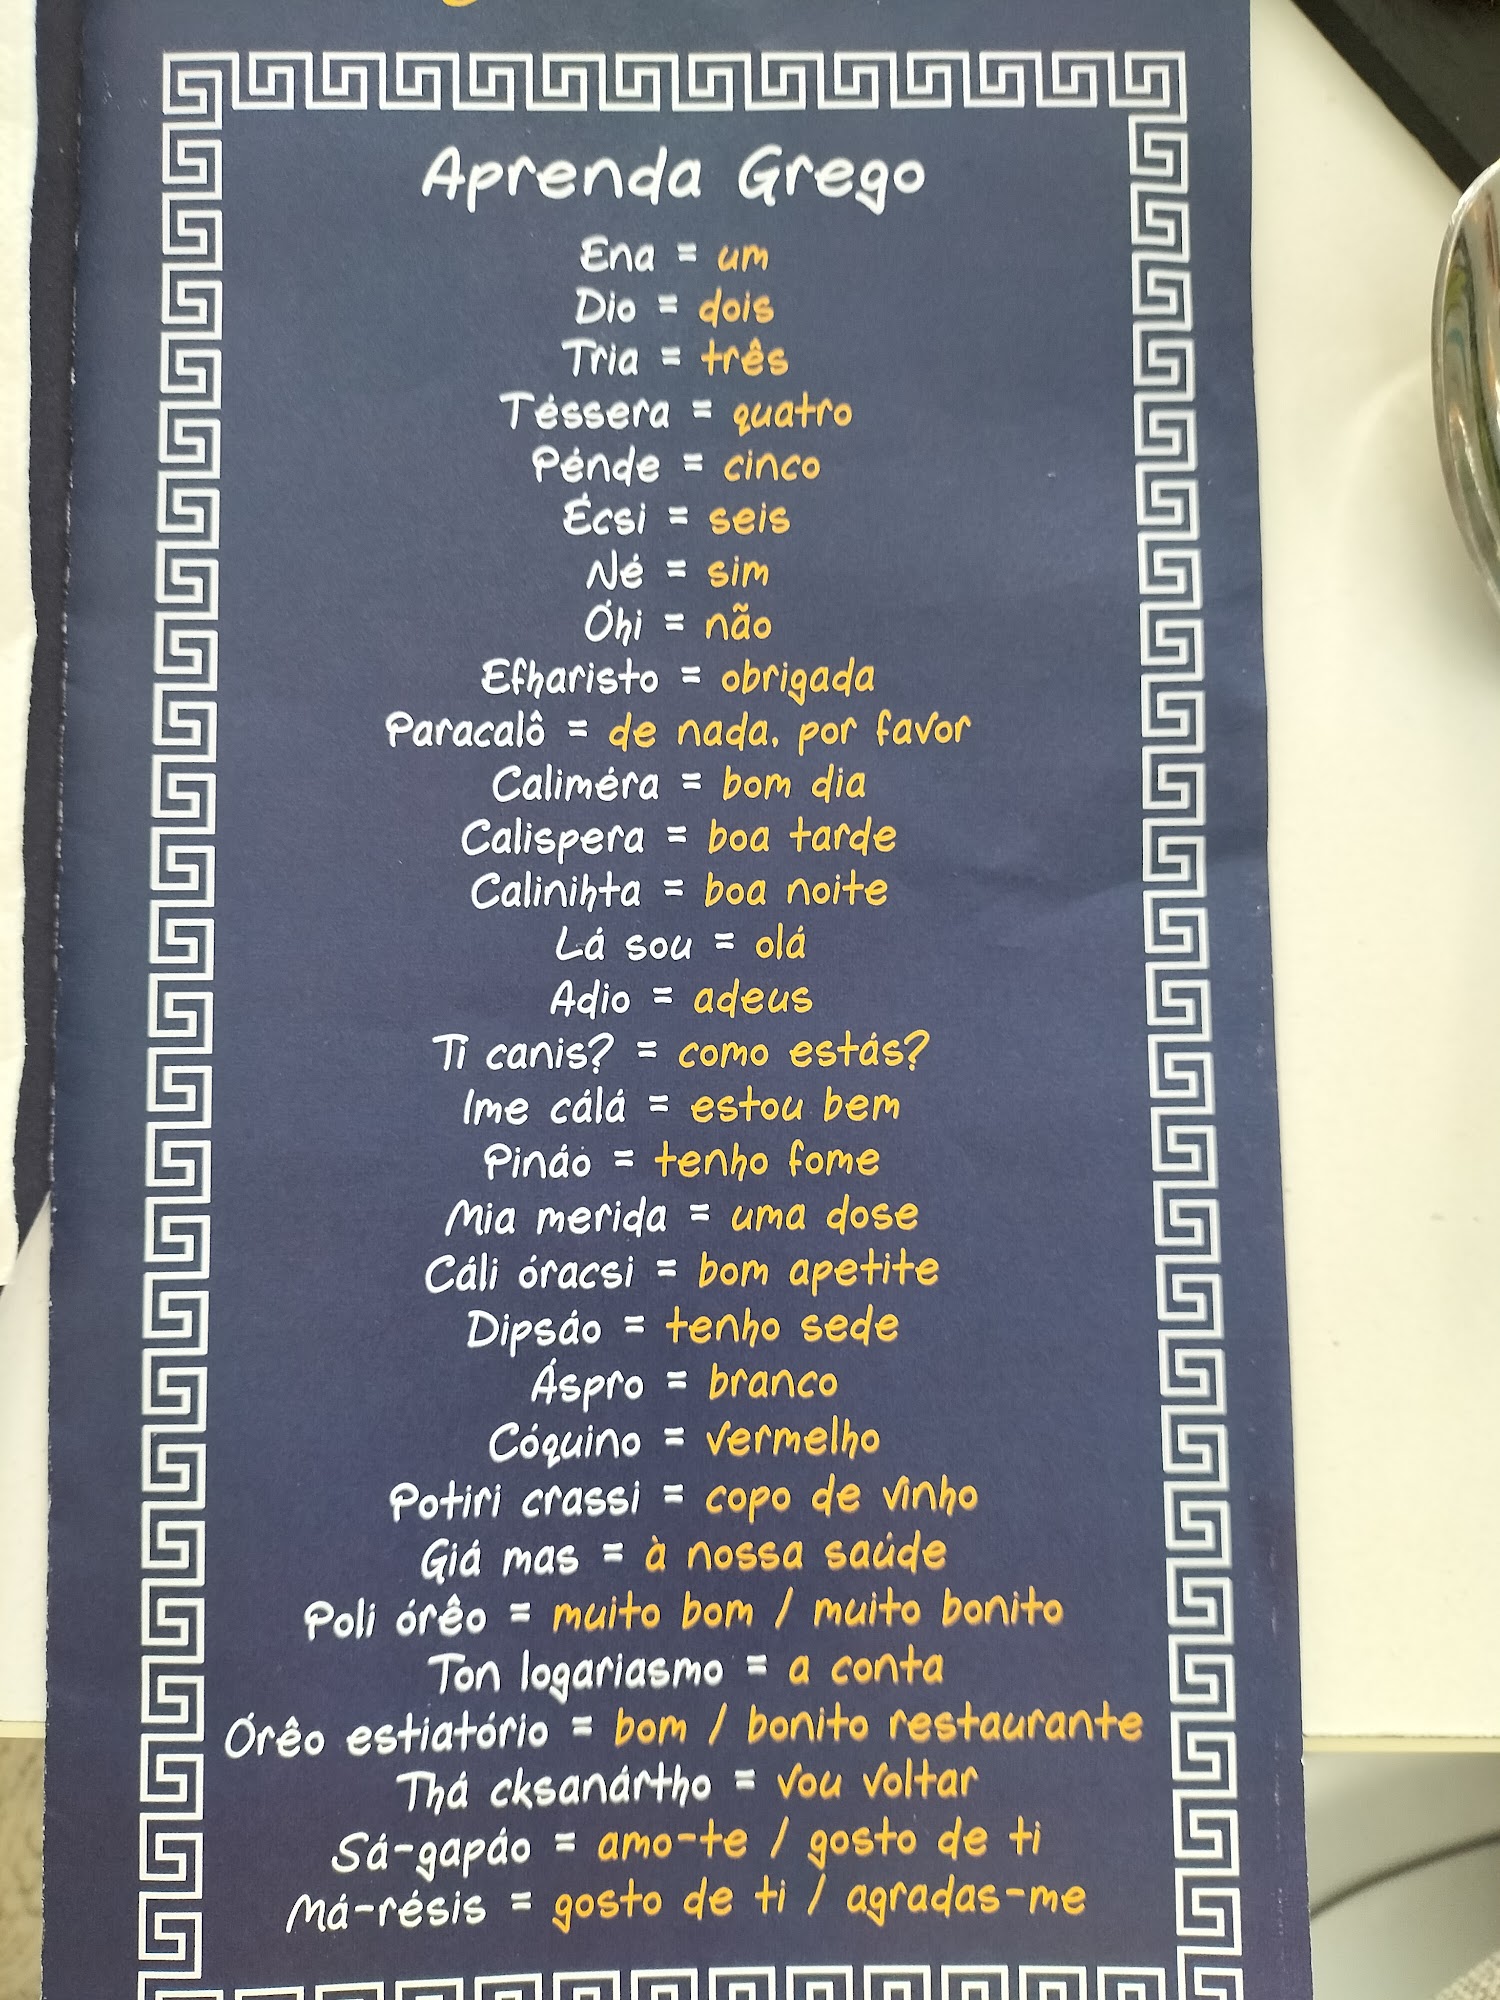 Aprenda Grego
Ena = um
Dio = dois
Tria = três
Téssera = quatro
Pénde = cinco
Écsi = seis
Né = sim
Óhi = não
Efharisto = obrigada
Paracalô = de nada, por favor
Caliméra = bom dia
Calispera = boa tarde
Calinihta = boa noite
Lá sou = olá
Adio = adeus
Ti canis? = como estás?
Ime cálá = estou bem
Pináo = tenho fome
Mia merida = uma dose
Cáli óracsi = bom apetite
Dipsáo = tenho sede
Áspro = branco
Cóquino = vermelho
Potiri crassi = copo de vinho
Giá mas = à nossa saúde
Poli órêo = muito bom / muito bonito
Ton logariasmo = a conta
Órêo estiatório = bom / bonito restaurante
Thá cksanártho = vou voltar
Sá-gapáo = amo-te / gosto de ti
Má-résis = gosto de ti / agradas-me